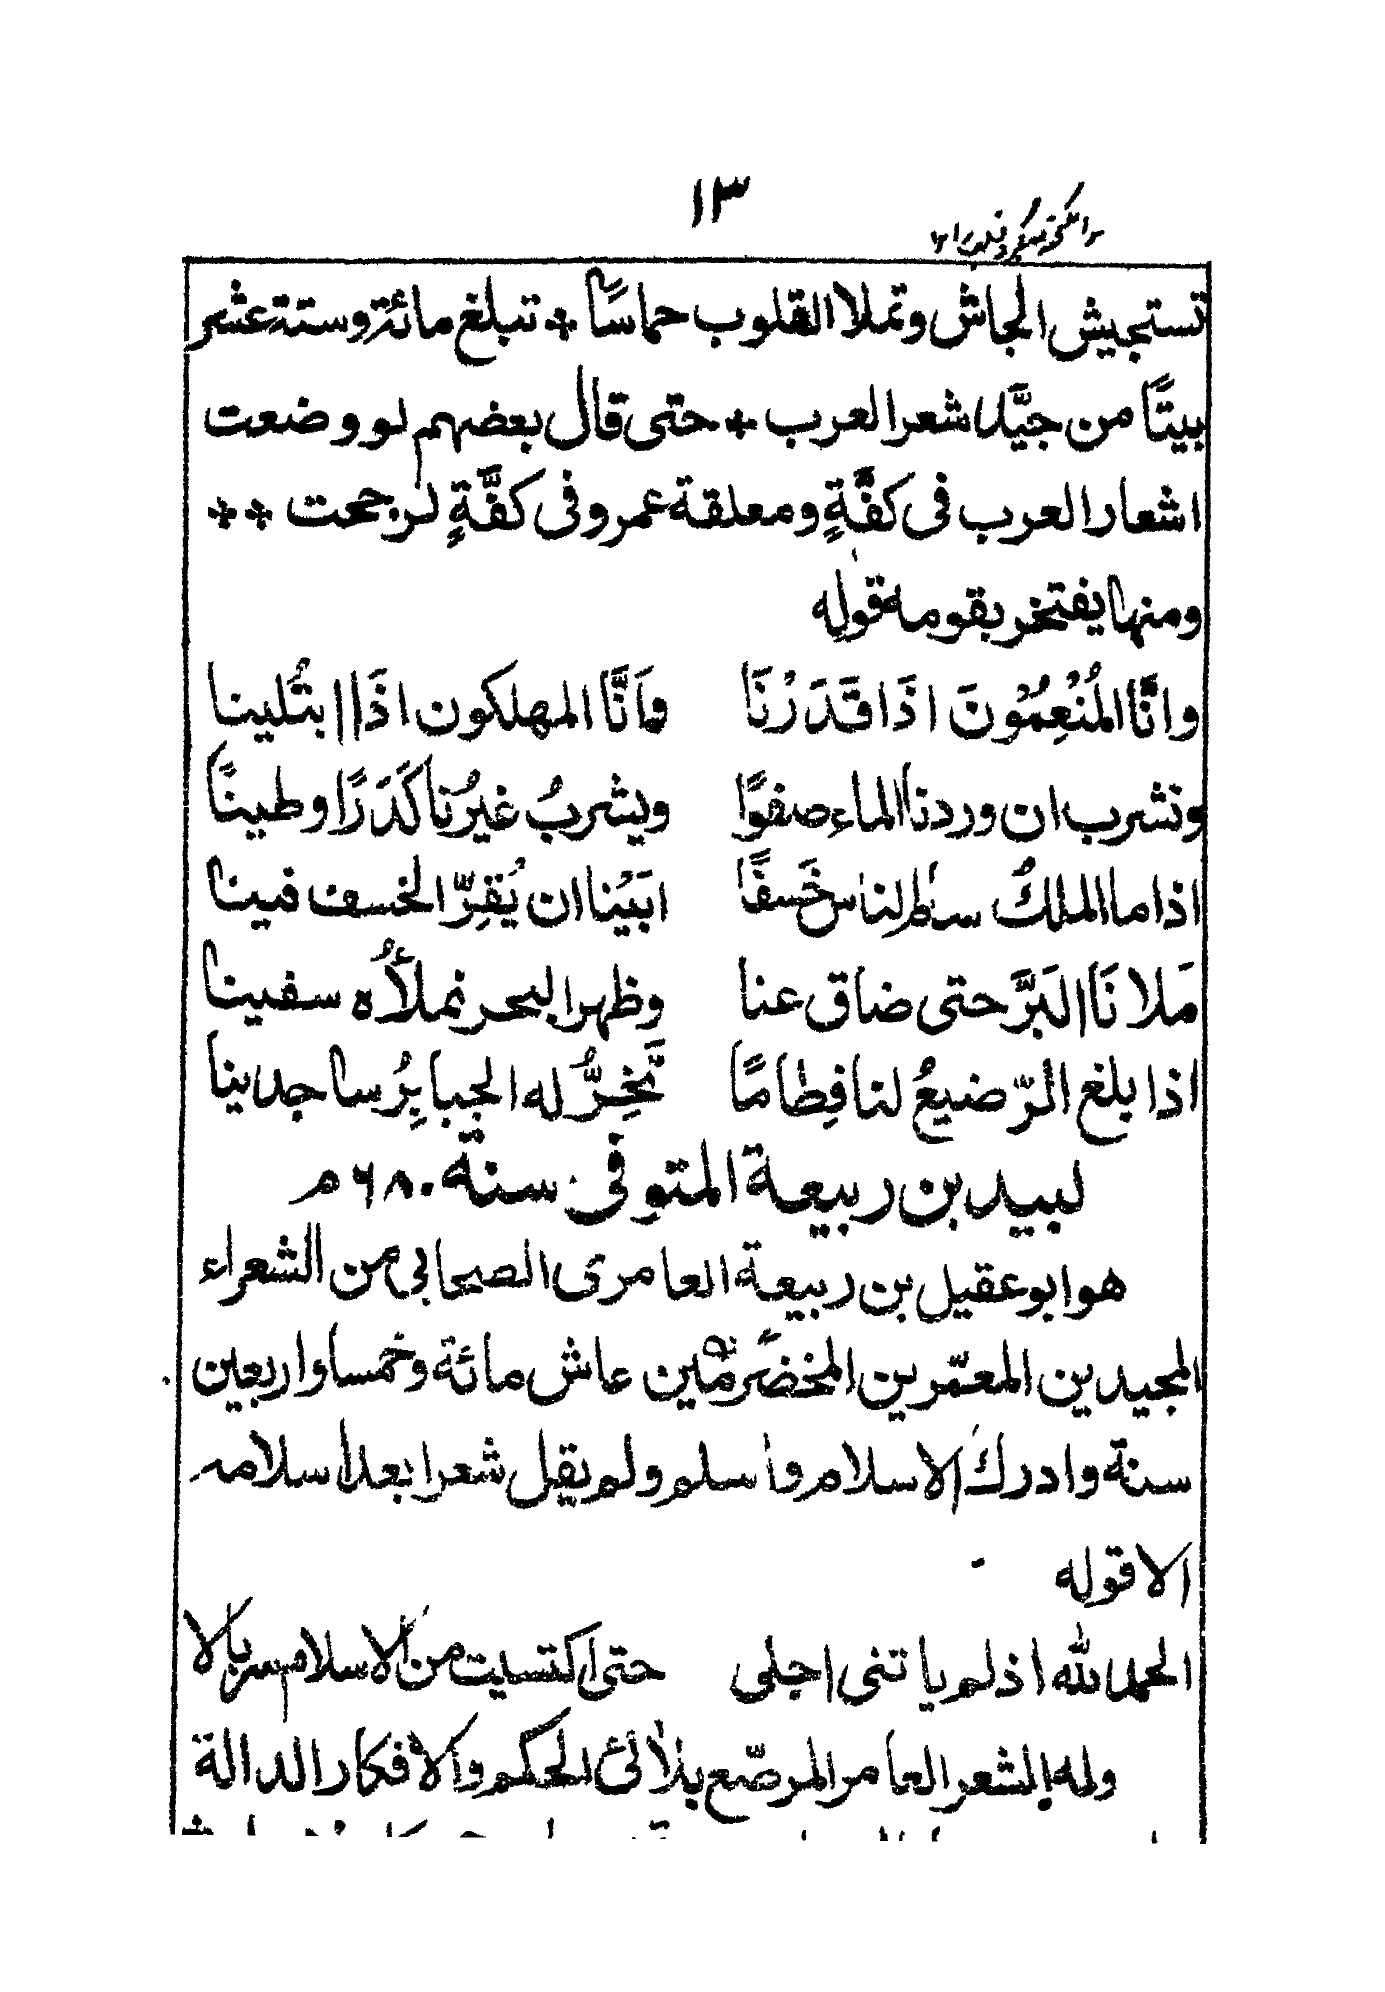 ١٣
تستجيش الجاش وتملا القلوب حماسًا * تبلغ مائة وستة عشر
بيتًا من جيَّد شعر العرب * حتى قال بعضهم لو وضعت
اشعار العرب فى كفَّةٍ ومعلقة عمرو فى كفَّةٍ لرجحت **
ومنها يفتخر بقومه قوله
وانَّا المُنْعِمُونَ اذَا قَدَرْنَا وَاَنَّا المهلكون اذَا ابتُلينا
ونشرب ان وردنا الماء صفوًا ويشربُ غيرُنا كَدَرًا وطينًا
اذا ما الملكُ سام الناس خَسفًا ابَيْنا ان يُقِرّ الخسف فينا
مَلانَا البَرَّ حتى ضاق عنا وظهر البحر نملأُه سفينا
اذا بلغ الرّضيعُ لنا فِطامًا تَخِرُّ له الجبابِرُ ساجدينا
لبيد بن ربيعة المتوفى سنة ٦٨٠ م
هو ابو عقيل بن ربيعة العامرى الصحابي من الشعراء
المجيدين المعمّرين المخضَرمين عاش مائة وخمسا واربعين
سنة وادرك الاسلام وأسلم ولم يقل شعرا بعد اسلامه
الا قوله
الحمد لله اذ لم ياتنى اجلى حتى اكتسيت من الاسلام سربالا
وله الشعر العامر المرصّع بلآلئ الحكم والأفكار الدالة